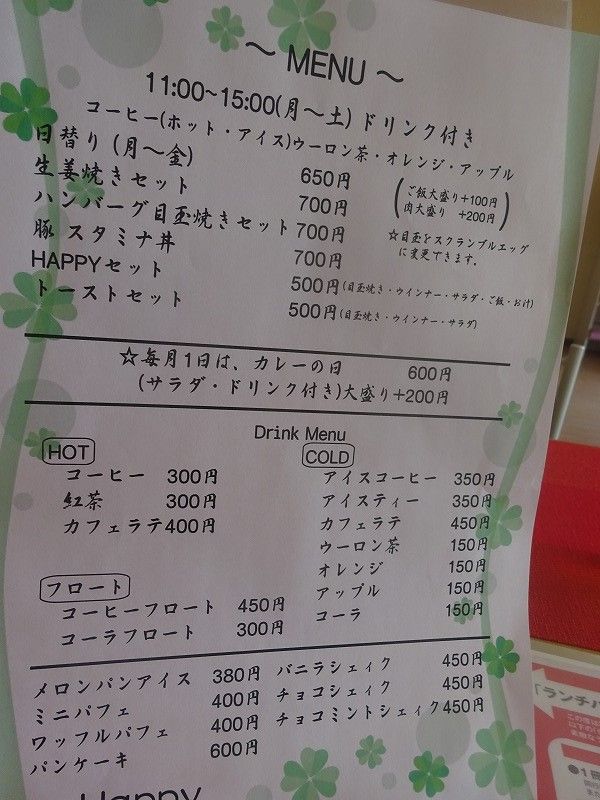 ～ MENU ～
11:00~15:00(月～土) ドリンク付き
コーヒー(ホット・アイス)ウーロン茶・オレンジ・アップル
日替り (月～金) 650円
生姜焼きセット 700円
ハンバーグ目玉焼きセット 700円
豚 スタミナ丼 700円
HAPPYセット 500円(目玉焼き・ウインナー・サラダ・ご飯・お汁)
トーストセット 500円(目玉焼き・ウインナー・サラダ)
(ご飯大盛り+100円
肉大盛り +200円)
☆目玉をスクランブルエッグ
に変更できます。
☆毎月1日は、カレーの日 600円
(サラダ・ドリンク付き)大盛り+200円
Drink Menu
HOT
コーヒー 300円
紅茶 300円
カフェラテ400円
COLD
アイスコーヒー 350円
アイスティー 350円
カフェラテ 450円
ウーロン茶 150円
オレンジ 150円
アップル 150円
コーラ 150円
フロート
コーヒーフロート 450円
コーラフロート 300円
メロンパンアイス 380円
ミニパフェ 400円
ワッフルパフェ 400円
パンケーキ 600円
バニラシェィク 450円
チョコシェィク 450円
チョコミントシェィク450円
Happy
「ランチパ
この度は
以下の
●1冊